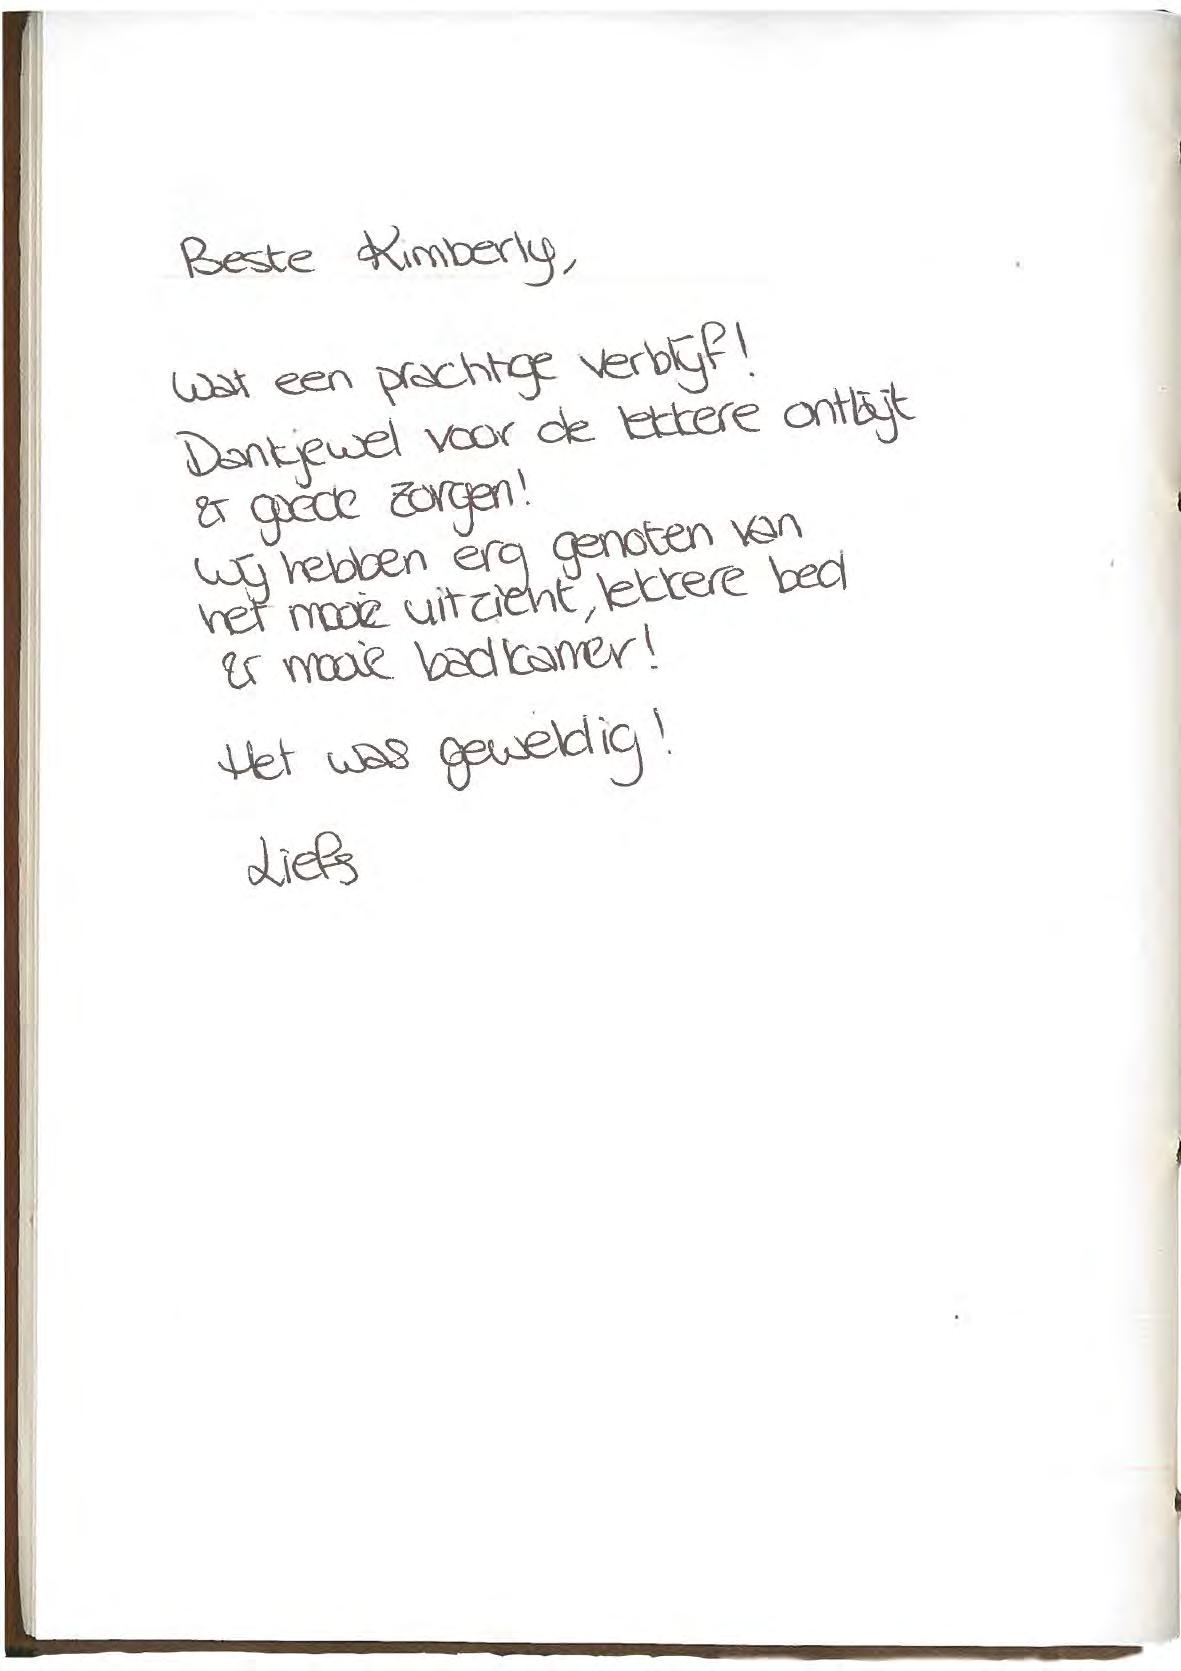 Beste Kimberly,
Wat een prachtige verblijf!
Dankjewel voor de lekkere ontbijt
& goede zorgen!
Wij hebben erg genoten van
het mooie uitzicht, lekkere bed
& mooie badkamer!
Het was geweldig!
Liefs